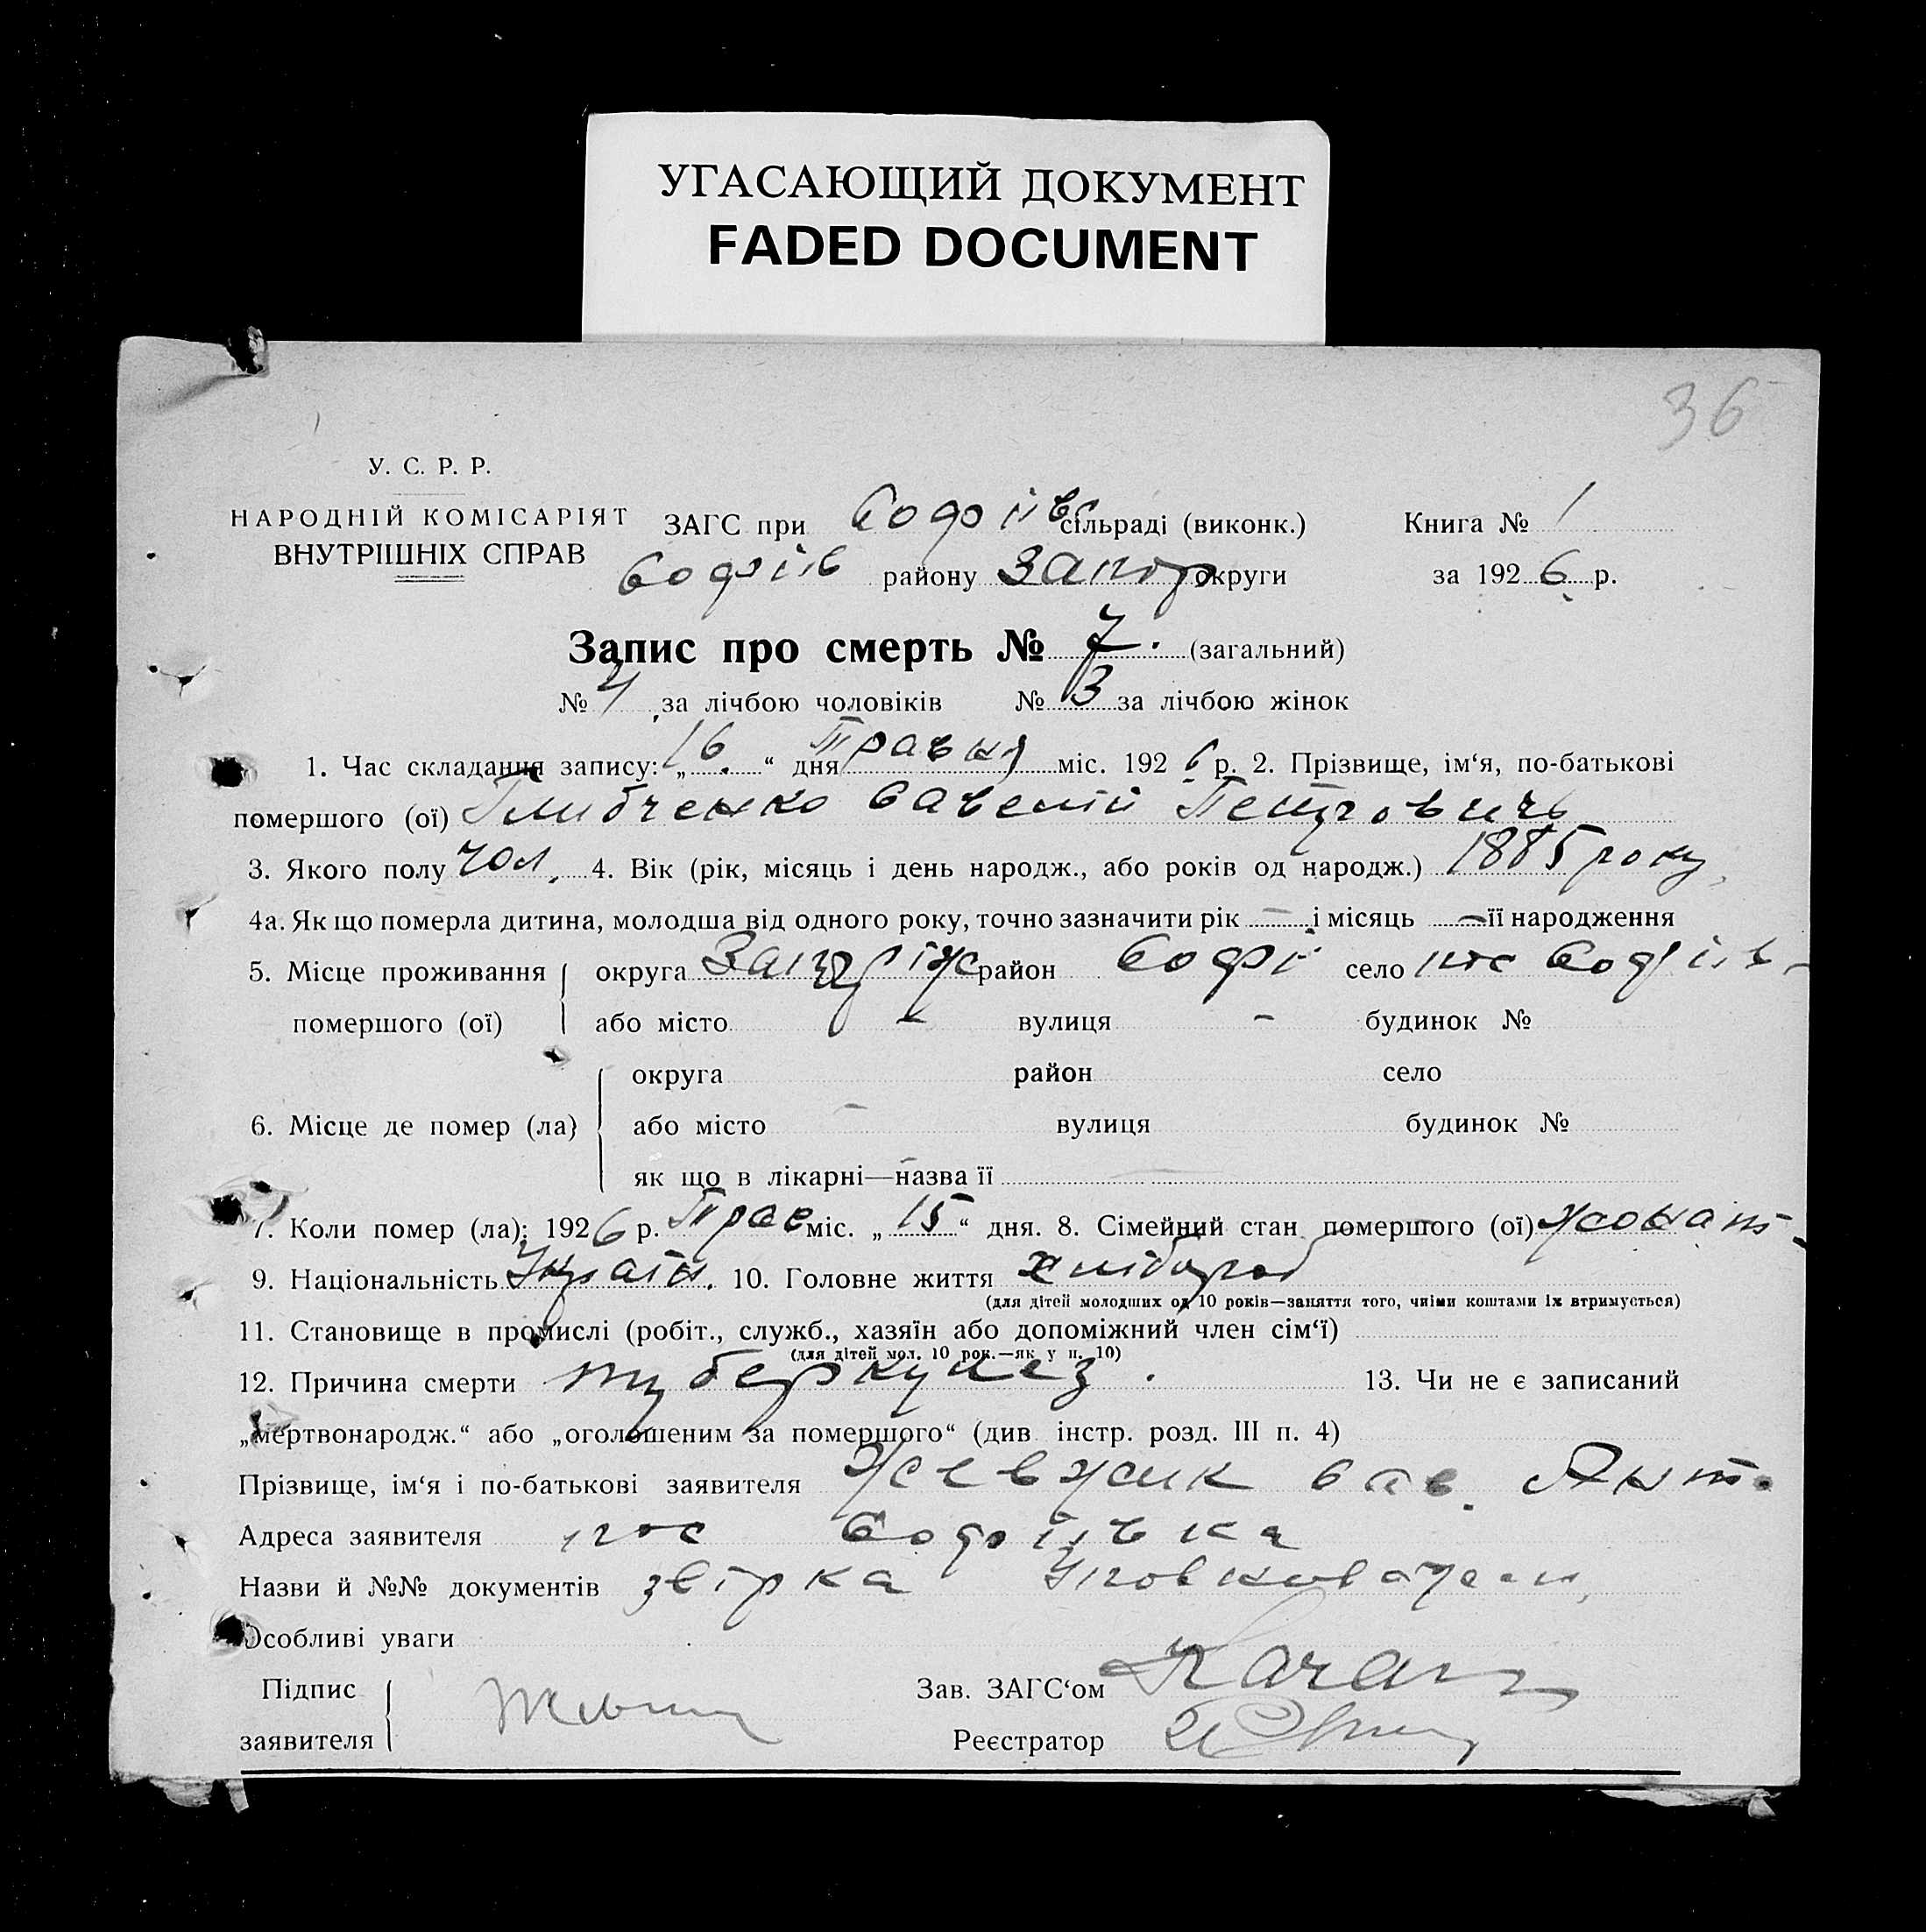 УГАСАЮЩИЙ ДОКУМЕНТ
FADED DOCUMENT
36
У. С. Р. Р.
НАРОДНІЙ КОМІСАРІЯТ
ВНУТРІШНІХ СПРАВ
ЗАГС при Софіів сільраді (виконк.) Книга № 1
Софіів району Запор округи за 1926 р.
Запис про смерть № 7. (загальний)
№ 4 за лічбою чоловіків № 3 за лічбою жінок
1. Час складання запису: „16.“ дня Травня міс. 1926 р. 2. Прізвище, ім‘я, по-батькові
помершого (ої) Глибченко Савелій Петровичь
3. Якого полу чол. 4. Вік (рік, місяць і день народж., або років од народж.) 1885 року
4а. Як що померла дитина, молодша від одного року, точно зазначити рік – і місяць – її народження
5. Місце проживання округа Запоріж район Софі село пос Софіів-
помершого (ої) або місто – вулиця – будинок №
округа район село
6. Місце де помер (ла) або місто – вулиця будинок №
як що в лікарні—назва її
7. Коли помер (ла): 1926 р. Трав міс. „15“ дня. 8. Сімейний стан помершого (ої) жонат-
9. Національність Україн. 10. Головне життя хлібороб
(для дітей молодших од 10 років—заняття того, чиїми коштами їх втримується)
11. Становище в промислі (робіт., служб., хазяїн або допоміжний член сім‘ї)
(для дітей мол. 10 рок.—як у п. 10)
12. Причина смерти туберкулез. 13. Чи не є записаний
„мертвонародж.“ або „оголошеним за помершого“ (див інстр. розд. III п. 4)
Прізвище, ім‘я і по-батькові заявителя Жевжик Сав. Ант.
Адреса заявителя пос Софіівка
Назви й №№ документів звірка
Особливі уваги
Підпис Зав. ЗАГС‘ом Качан
заявителя Реєстратор